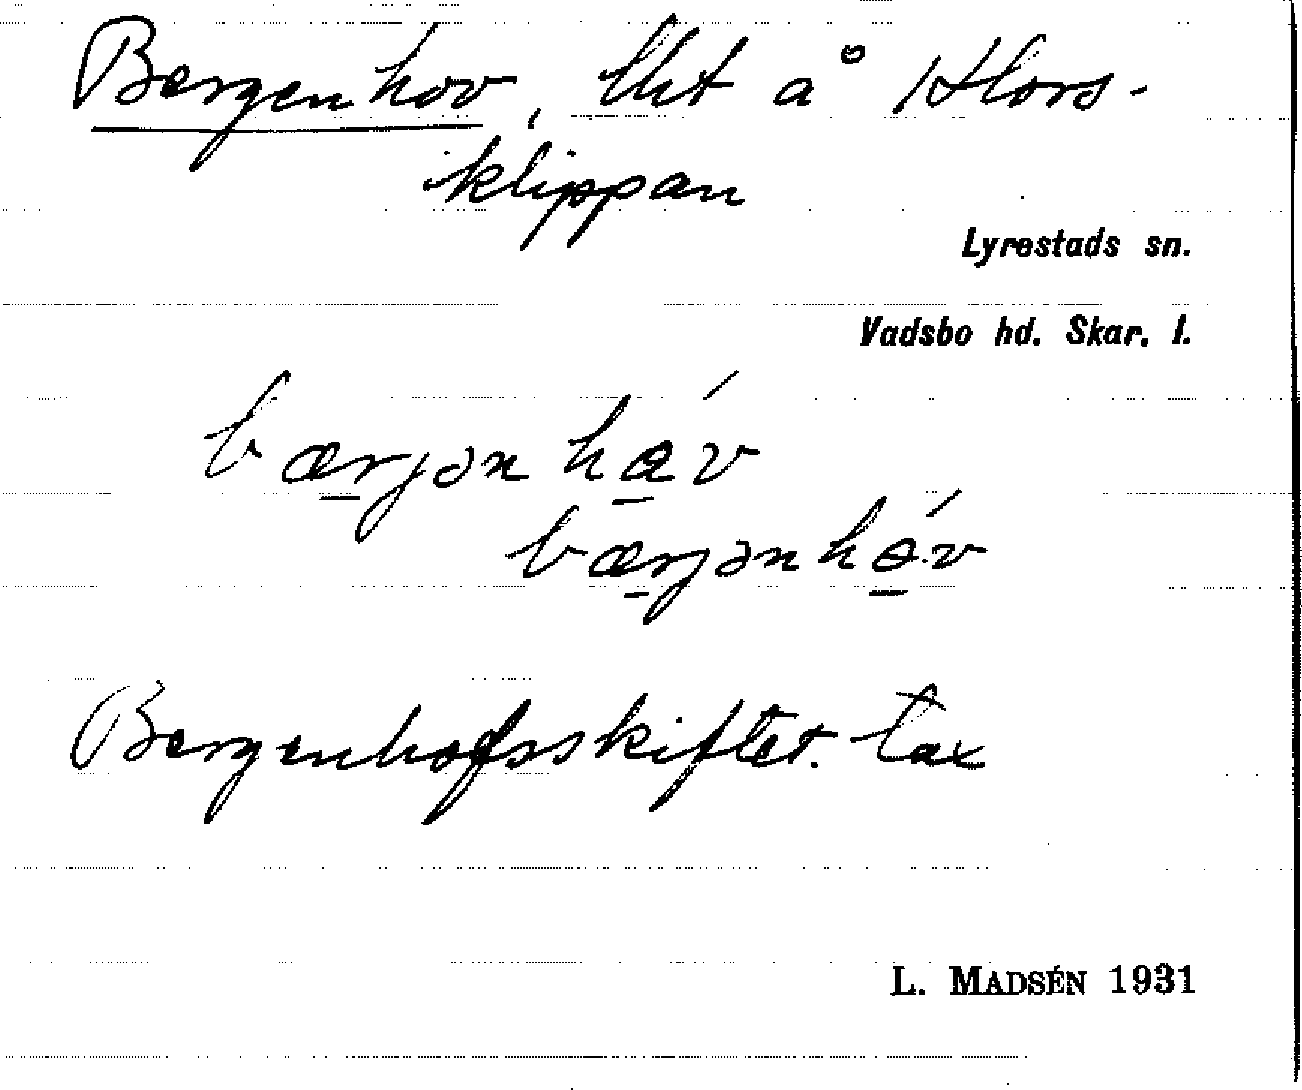 Bergenhov, lht å Hors-
klippan
Lyrestads sn.
Vadsbo hd. Skar. l.
bærjən háv
bærjənháv
Bergenhofsskiftet. tax
L. MADSÉN 1931